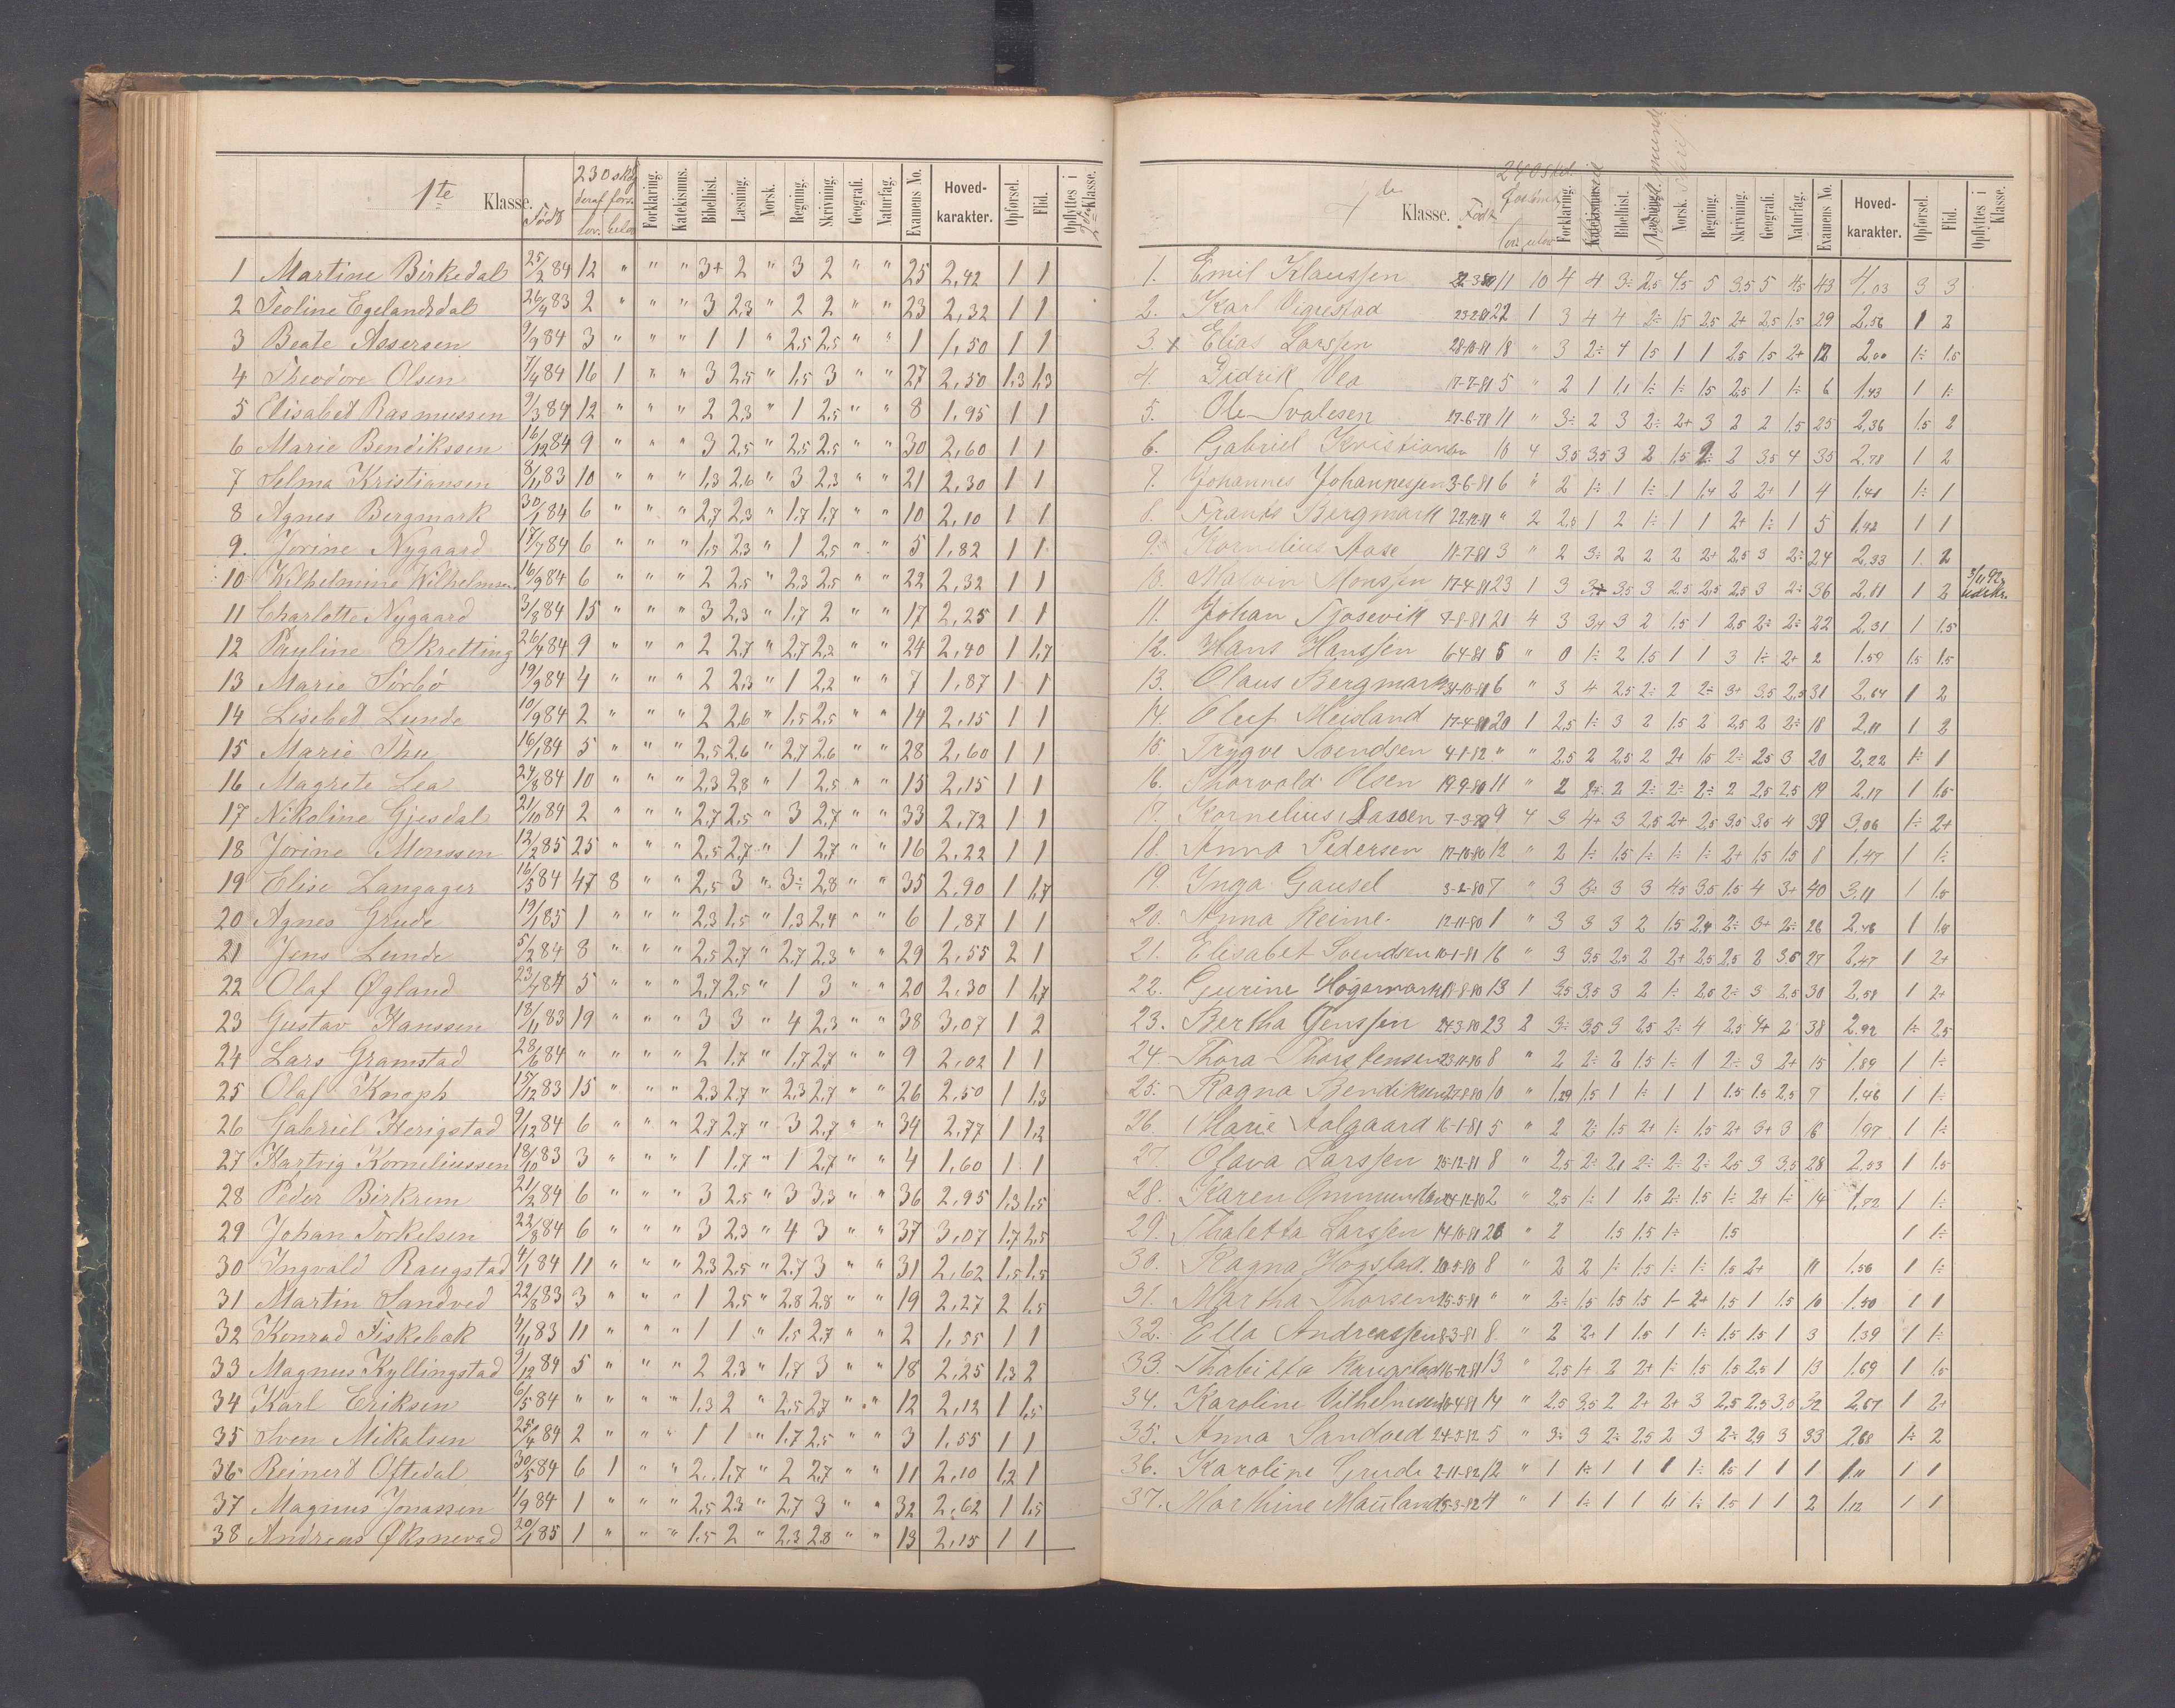 1te Klasse. Født 230 skdg. deraf fors. lov. ulov. Forklaring. Katekismus. Bibelhist. Læsning. Norsk. Regning. Skrivning. Geografi. Naturfag. Examens No. Hoved-karakter. Opførsel. Flid. Opflyttes i 2den Klasse.
1 Martine Birkedal 25/2 84 12 " " " 3+ 2 " 3 2 " " 25 2,42 1 1
2 Teoline Egelandsdal 26/4 83 2 " " " 3 2,3 " 2 2 " " 23 2,32 1 1
3 Beate Assersen 9/9 84 3 " " " 1 1 " 2,5 2,5 " " 1 1,50 1 1
4 Theodore Olsen 7/4 84 16 1 " " 3 2,5 " 1,5 3 " " 27 2,50 1,3 1,3
5 Elisabet Rasmussen 9/3 84 12 " " " 2 2,3 " 1 2,5 " " 8 1,95 1 1
6 Marie Bendikssen 16/12 84 9 " " " 3 2,5 " 2,5 2,5 " " 30 2,60 1 1
7 Selma Kristiansen 8/11 83 10 " " " 1,3 2,6 " 3 2,3 " " 21 2,30 1 1
8 Agnes Bergmark 30/1 84 6 " " " 2,7 2,3 " 1,7 1,7 " " 10 2,10 1 1
9. Jorine Nygaard 17/7 84 6 " " " 1,5 2,3 " 1 2,5 " " 5 1,82 1 1
10 Wilhelmine Wilhelmsen 16/9 84 6 " " " 2 2,5 " 2,3 2,5 " " 22 2,32 1 1
11 Charlotte Nygaard 3/8 84 15 " " " 3 2,3 " 1,7 2 " " 17 2,25 1 1
12 Pauline Skretting 26/4 84 9 " " " 2 2,7 " 2,7 2,2 " " 24 2,40 1 1,7
13 Marie Sørbø 19/9 84 4 " " " 2 2,3 " 1 2,2 " " 7 1,87 1 1
14 Lisebet Lunde 10/9 84 2 " " " 2 2,6 " 1,5 2,5 " " 14 2,15 1 1
15 Marie Thu 16/1 84 5 " " " 2,5 2,6 " 2,7 2,6 " " 28 2,60 1 1
16 Magrete Lea 24/8 84 10 " " " 2,3 2,8 " 1 2,5 " " 15 2,15 1 1
17 Nikoline Gjesdal 21/10 84 2 " " " 2,7 2,5 " 3 2,7 " " 33 2,72 1 1
18 Jorine Monssen 12/2 85 25 " " " 2,5 2,7 " 1 2,7 " " 16 2,22 1 1
19 Elise Langager 16/5 84 47 8 " " 2,5 3 " 3÷ 2,8 " " 35 2,90 1 1,7
20 Agnes Grude 19/1 85 1 " " " 2,3 1,5 " 1,3 2,4 " " 6 1,87 1 1
21 Jens Lunde 5/2 84 8 " " " 2,5 2,7 " 2,7 2,3 " " 29 2,55 2 1
22 Olaf Øgland 23/1 84 5 " " " 2,7 2,5 " 1 3 " " 20 2,30 1 1,7
23 Gustav Hanssen 18/11 83 19 " " " 3 3 " 4 2,3 " " 38 3,07 1 2
24 Lars Gramstad 28/6 84 " " " " 2 1,7 " 1,7 2,7 " " 9 2,02 1 1
25 Olaf Knoph 15/12 83 15 " " " 2,3 2,7 " 2,3 2,7 " " 26 2,50 1 1,3
26 Gabriel Herigstad 9/12 84 6 " " " 2,7 2,7 " 3 2,7 " " 34 2,77 1 1,2
27 Hartvig Korneliussen 18/10 83 3 " " " 1 1,7 " 1 2,7 " " 4 1,60 1 1
28 Peder Birkrem 21/2 84 6 " " " 3 2,5 " 3 3,3 " " 36 2,95 1,3 1,5
29 Johan Torkelsen 22/8 84 6 " " " 3 2,3 " 4 3 " " 37 3,07 1,7 2,5
30 Ingvald Raugstad 4/1 84 11 " " " 2,3 2,5 " 2,7 3 " " 31 2,62 1,5 1,5
31 Martin Sandved 22/8 83 3 " " " 1 2,5 " 2,8 2,8 " " 19 2,27 2 1,5
32 Konrad Fiskebæk 4/11 83 11 " " " 1 1 " 1,5 2,7 " " 2 1,55 1 1
33 Magnus Kyllingstad 9/12 84 5 " " " 2 2,3 " 1,7 3 " " 18 2,25 1,3 2
34 Karl Eriksen 6/5 84 " " " " 1,3 2 " 2,5 2,7 " " 12 2,12 1 1,5
35 Sven Mikalsen 25/4 84 2 " " " 1 1 " 1,7 2,5 " " 3 1,55 1 1
36 Reinert Oftedal 30/5 84 6 1 " " 2 1,7 " 2 2,7 " " 11 2,10 1,2 1
37 Magnus Jonassen 1/9 84 1 " " " 2,5 2,3 " 2,7 3 " " 32 2,62 1 1,5
38 Andreas Øksnevad 20/1 85 1 " " " 1,5 2 " 2,3 2,8 " " 13 2,15 1 1
Klasse. Født 240 skd. lov. ulov. Forklaring. Katekismus. Bibelhist. Læsning. Norsk. Regning. Skrivning. Geografi. Naturfag. Examens No. Hoved-karakter. Opførsel. Flid. Opflyttes i Klasse.
1. Emil Klaussen 22-3-80 11 10 4 4 3÷ 2,5 4,5 5 3,5 5 4,5 43 4,03 3 3
2. Karl Vigrestad 23-2-81 22 1 3 4 4 2÷ 1,5 2,5 2+ 2,5 1,5 29 2,56 1 2
3 x Elias Larssen 28-10-81 18 " 3 2÷ 4 1,5 1 1 2,5 1,5 2+ 12 2,00 1÷ 1,5
4. Didrik Vea 17-7-81 5 " 2 1 1,1 1÷ 1÷ 1,5 2,5 1 1÷ 6 1,43 1 1÷
5. Ole Svalesen 17-6-78 11 " 3÷ 2 3 2÷ 2+ 3 2 2 1,5 25 2,36 1,5 2
6. Gabriel Kristiansen 10 4 3,5 3,5 3 2 1,5 2÷ 2 3,5 4 35 2,78 1 2
7. Johannes Johannessen 3-6-81 6 " 2 1÷ 1 1÷ 1 1,4 2 2+ 1 4 1,41 1÷ 1
8. Frants Bergmark 22-12-81 " 2 2,5 1 2 1÷ 1 1 2+ 1÷ 1 5 1,42 1 1
9. Kornelius Aase 11-7-81 3 " 2 3÷ 2 2 2 2+ 2,5 3 2÷ 24 2,33 1 2
10. Malvin Monssen 17-4-81 23 1 3 3+ 3,5 3 2,5 2,5 2,5 3 2÷ 36 2,81 1 2 3/11 92 udskr.
11. Johan Tjosevik 7-8-81 21 4 3 3+ 3 2 1,5 1 2,5 2÷ 2÷ 22 2,31 1 1,5
12. Hans Hanssen 6-4-81 5 " 0 1÷ 2 1,5 1 1 3 1÷ 2+ 2 1,59 1,5 1,5
13. Olaus Bergmark 31-10-81 6 " 3 4 2,5 2÷ 2 2÷ 3+ 3,5 2,5 31 2,64 1 2
14. Oluf Meisland 17-4-81 20 1 2,5 1÷ 3 2 1,5 2 2,5 2 2÷ 18 2,11 1 2
15. Trygve Svendsen 4-1-82 " " 2,5 2 2,5 2 2+ 1,5 2÷ 2,5 3 20 2,22 1÷ 1
16. Thorvald Olsen 19-9-80 11 " 2 2+ 2 2÷ 2÷ 2÷ 2 2,5 2,5 19 2,17 1 1,5
17. Kornelius Lassen 7-3-79 9 4 3 4+ 3 2,5 2+ 2,5 3,5 3,5 4 39 3,06 1÷ 2+
18. Anna Pedersen 17-10-80 12 " 2 1÷ 1,5 1÷ 1÷ 1÷ 2+ 1,5 1,5 8 1,47 1 1÷
19. Inga Gausel 3-2-80 7 " 3 3÷ 3 3 4,5 3,5 1,5 4 3+ 40 3,11 1 1,5
20. Anna Reime. 12-11-80 1 " 3 3 3 2 1,5 2,4 2÷ 3+ 2÷ 26 2,46 1 1,5
21. Elisabet Svendsen 10-1-81 16 " 3 3,5 2,5 2 2+ 2,5 2,5 2 3,5 27 2,47 1 2+
22. Gurine Høgemark 18-8-80 13 1 3,5 3,5 3 2 1÷ 2,5 2÷ 3 2,5 30 2,58 1 2+
23. Bertha Jenssen 24-3-80 23 2 3÷ 3,5 3 2,5 2÷ 4 2,5 4+ 2 38 2,92 1÷ 2,5
24 Thora Thorstensen 23-11-80 8 " 2 2÷ 2 1,5 1÷ 1 2÷ 3 2+ 15 1,89 1 1÷
25. Ragna Bendiksen 27-8-80 10 " 1,29 1,5 1 1÷ 1 1 1,5 1,5 2,5 7 1,46 1 1÷
26. Marie Aalgaard 16-1-81 5 " 2 2÷ 1,5 2+ 1÷ 1,5 2+ 3+ 3 16 1,97 1 1÷
27. Olava Larssen 25-12-81 8 " 2,5 2÷ 2,1 2÷ 2÷ 2÷ 2,5 3 3,5 28 2,53 1 1,5
28. Karen Ommundsen 24-12-80 2 " 2,5 1÷ 1 1,5 2÷ 1,5 1÷ 2+ 1÷ 14 1,82 1 1÷
29. Thaletta Larssen 14-10-81 26 " 2 1,5 1,5 1÷ 1,5 1 1÷
30. Ragna Hogstad. 20-5-80 8 " 2 2 1÷ 1,5 1÷ 1÷ 1,5 2+ 11 1,56 1 1÷
31. Martha Thorsen 25-5-81 " " 2÷ 1,5 1,5 1,5 1- 2+ 1,5 1 1,5 10 1,50 1 1
32. Ella Andreassen 8-3-81 8. " 2 2+ 1 1,5 1 1÷ 1,5 1,5 1 3 1,39 1 1÷
33. Thabitta Raugstad 16-12-81 13 " 2,5 1+ 2 2+ 1÷ 1,5 1,5 2,5 1 13 1,69 1 1,5
34. Karoline Vilhelmsen 10-4-81 14 " 2,5 3,5 2 2+ 2+ 3 2,5 2,5 3,5 32 2,67 1 2+
35. Anna Sandved 24-3-82 5 " 3÷ 3 2÷ 2,5 2 3 2÷ 2,9 3 33 2,68 1÷ 2
36. Karoline Grude 2-11-82 12 " 1 1÷ 1 1 1 1÷ 1,5 1 1 1 1,11 1 1
37. Marthine Mauland 25-3-82 4 " 1 1÷ 1 1 1,1 1÷ 1,5 1 1 2 1,12 1 1